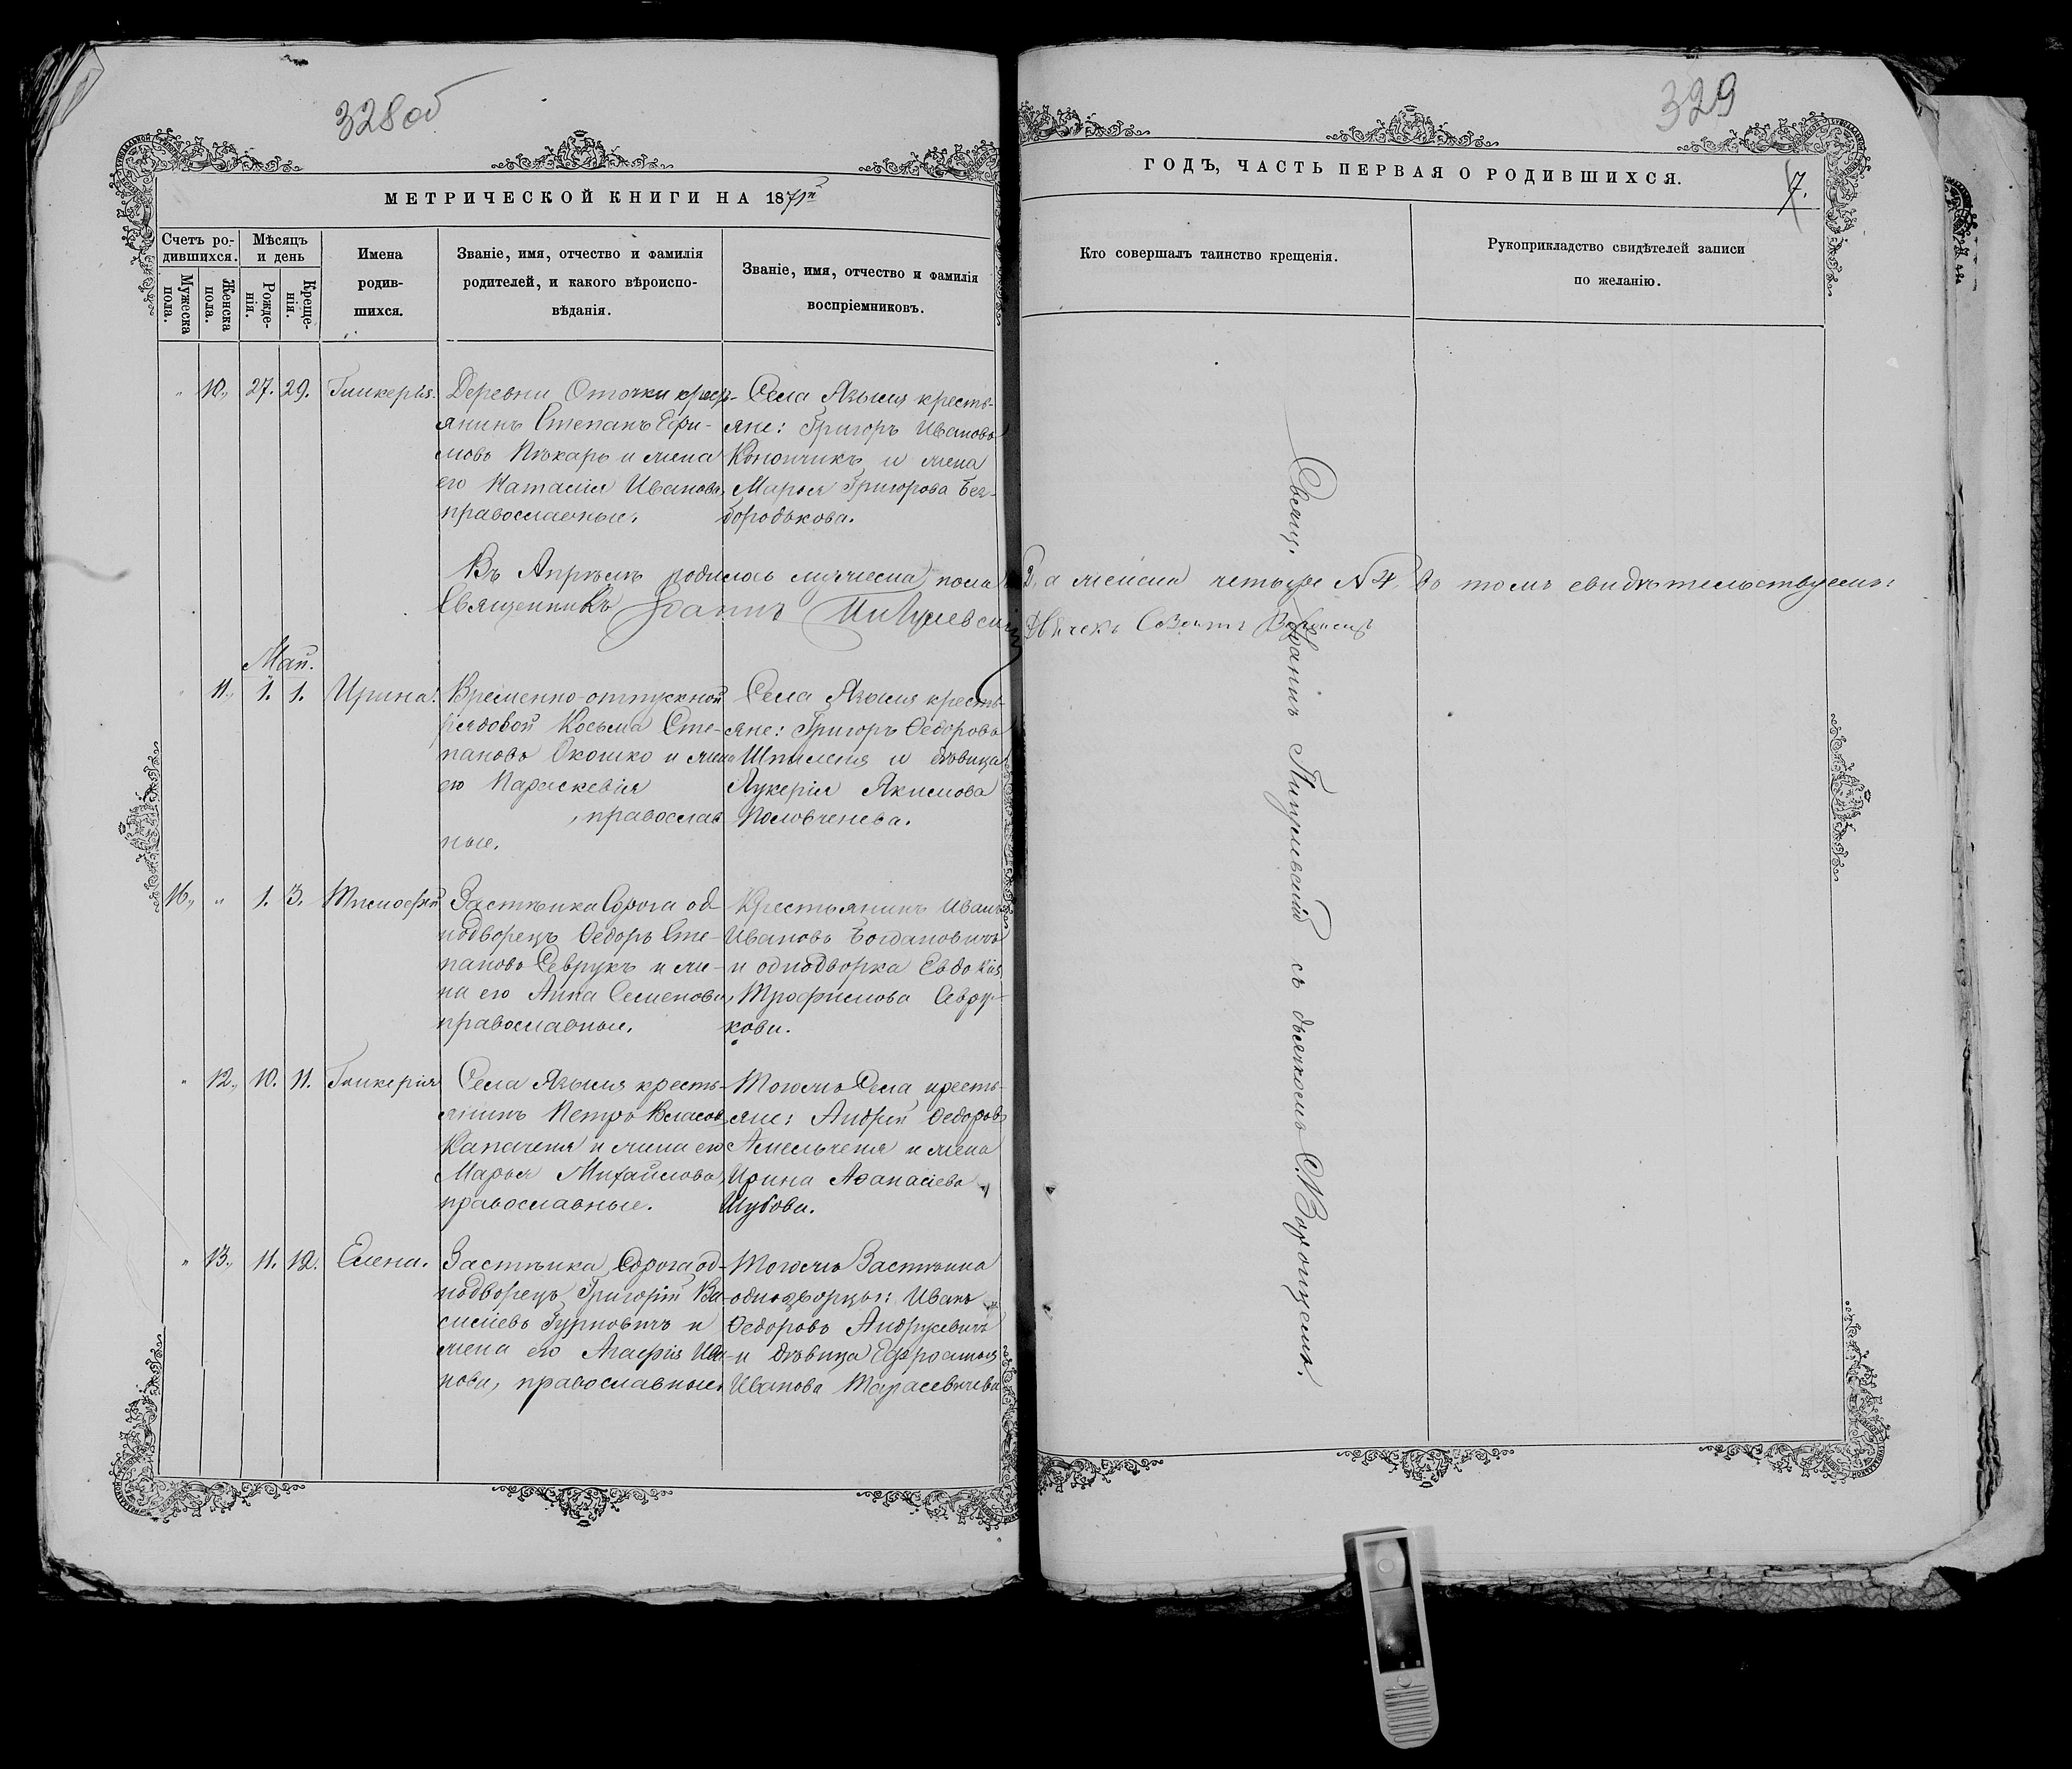 328 об
329
МЕТРИЧЕСКОЙ КНИГИ НА 1871й
ГОДЪ, ЧАСТЬ ПЕРВАЯ О РОДИВШИХСЯ.
7.
Счетъ ро-
дившихся.
Мужеска
пола.
Женска
пола.
Мѣсяцъ
и день
Рожде-
нія.
Креще-
нія.
Имена
родив-
шихся.
Званіе, имя, отчество и фамилія
родителей, и какого вѣроиспо-
вѣданія.
Званіе, имя, отчество и фамилія
воспріемниковъ.
Кто совершалъ таинство крещенія.
Рукоприкладство свидѣтелей записи
по желанію.
" 10., 27. 29. Гликерія.
Деревни Оточки крест-
янинъ Степанъ
мовъ Пѣкарь и жена
его Наталія Иванова,
православные.
Села Языля кресть-
яне: Григоръ Ивановъ
Конончикъ и жена
Марья Григорова Без-
бородькова.
Въ Апрѣлѣ родилось мужеска пола 3, а женска четыре № 4, въ томъ свидѣтельствуемъ:
Священникъ Іоаннъ
Май.
" 11., 1. 1. Ирина.
Временно-отпускной
рядовой Косьма Сте-
пановъ Окошко и жена
его Параскевія
, православ
ные.
Села Языля кресть-
яне: Григоръ Ѳедоровъ
и дѣвица
Лукерія Якимова
Половченева.
16., " 1. 3. Тимофей
Застѣнка Сорога од-
нодворецъ Ѳедоръ Сте-
пановъ Севрукъ и же-
на его Анна Семенова,
православные.
Крестьянинъ Иванъ
Ивановъ Богдановичъ
и однодворка Евдокія
Трофимова Севру-
кова.
" 12., 10. 11. Гликерія
Села Языля кресть-
янинъ Петръ Власовъ
Капаченя и жена его
Марья Михайлова,
православные.
Тогожъ Села кресть-
яне: Андрей Ѳедоровъ
Амельченя и жена
Ирина Аѳанасіева
Шубова.
" 13., 11. 12. Елена.
Застѣнка Сорога од-
нодворецъ Григорій Ва-
силіевъ Гурновичъ и
жена его Агафія Ива-
нова, православные.
Тогожъ Застѣнка
однодворцы: Иванъ
Ѳедоровъ Андрусевичъ
и дѣвица Ефросинья
Иванова Тарасевичева
Свящ. Іоаннъ съ дьячкомъ С.